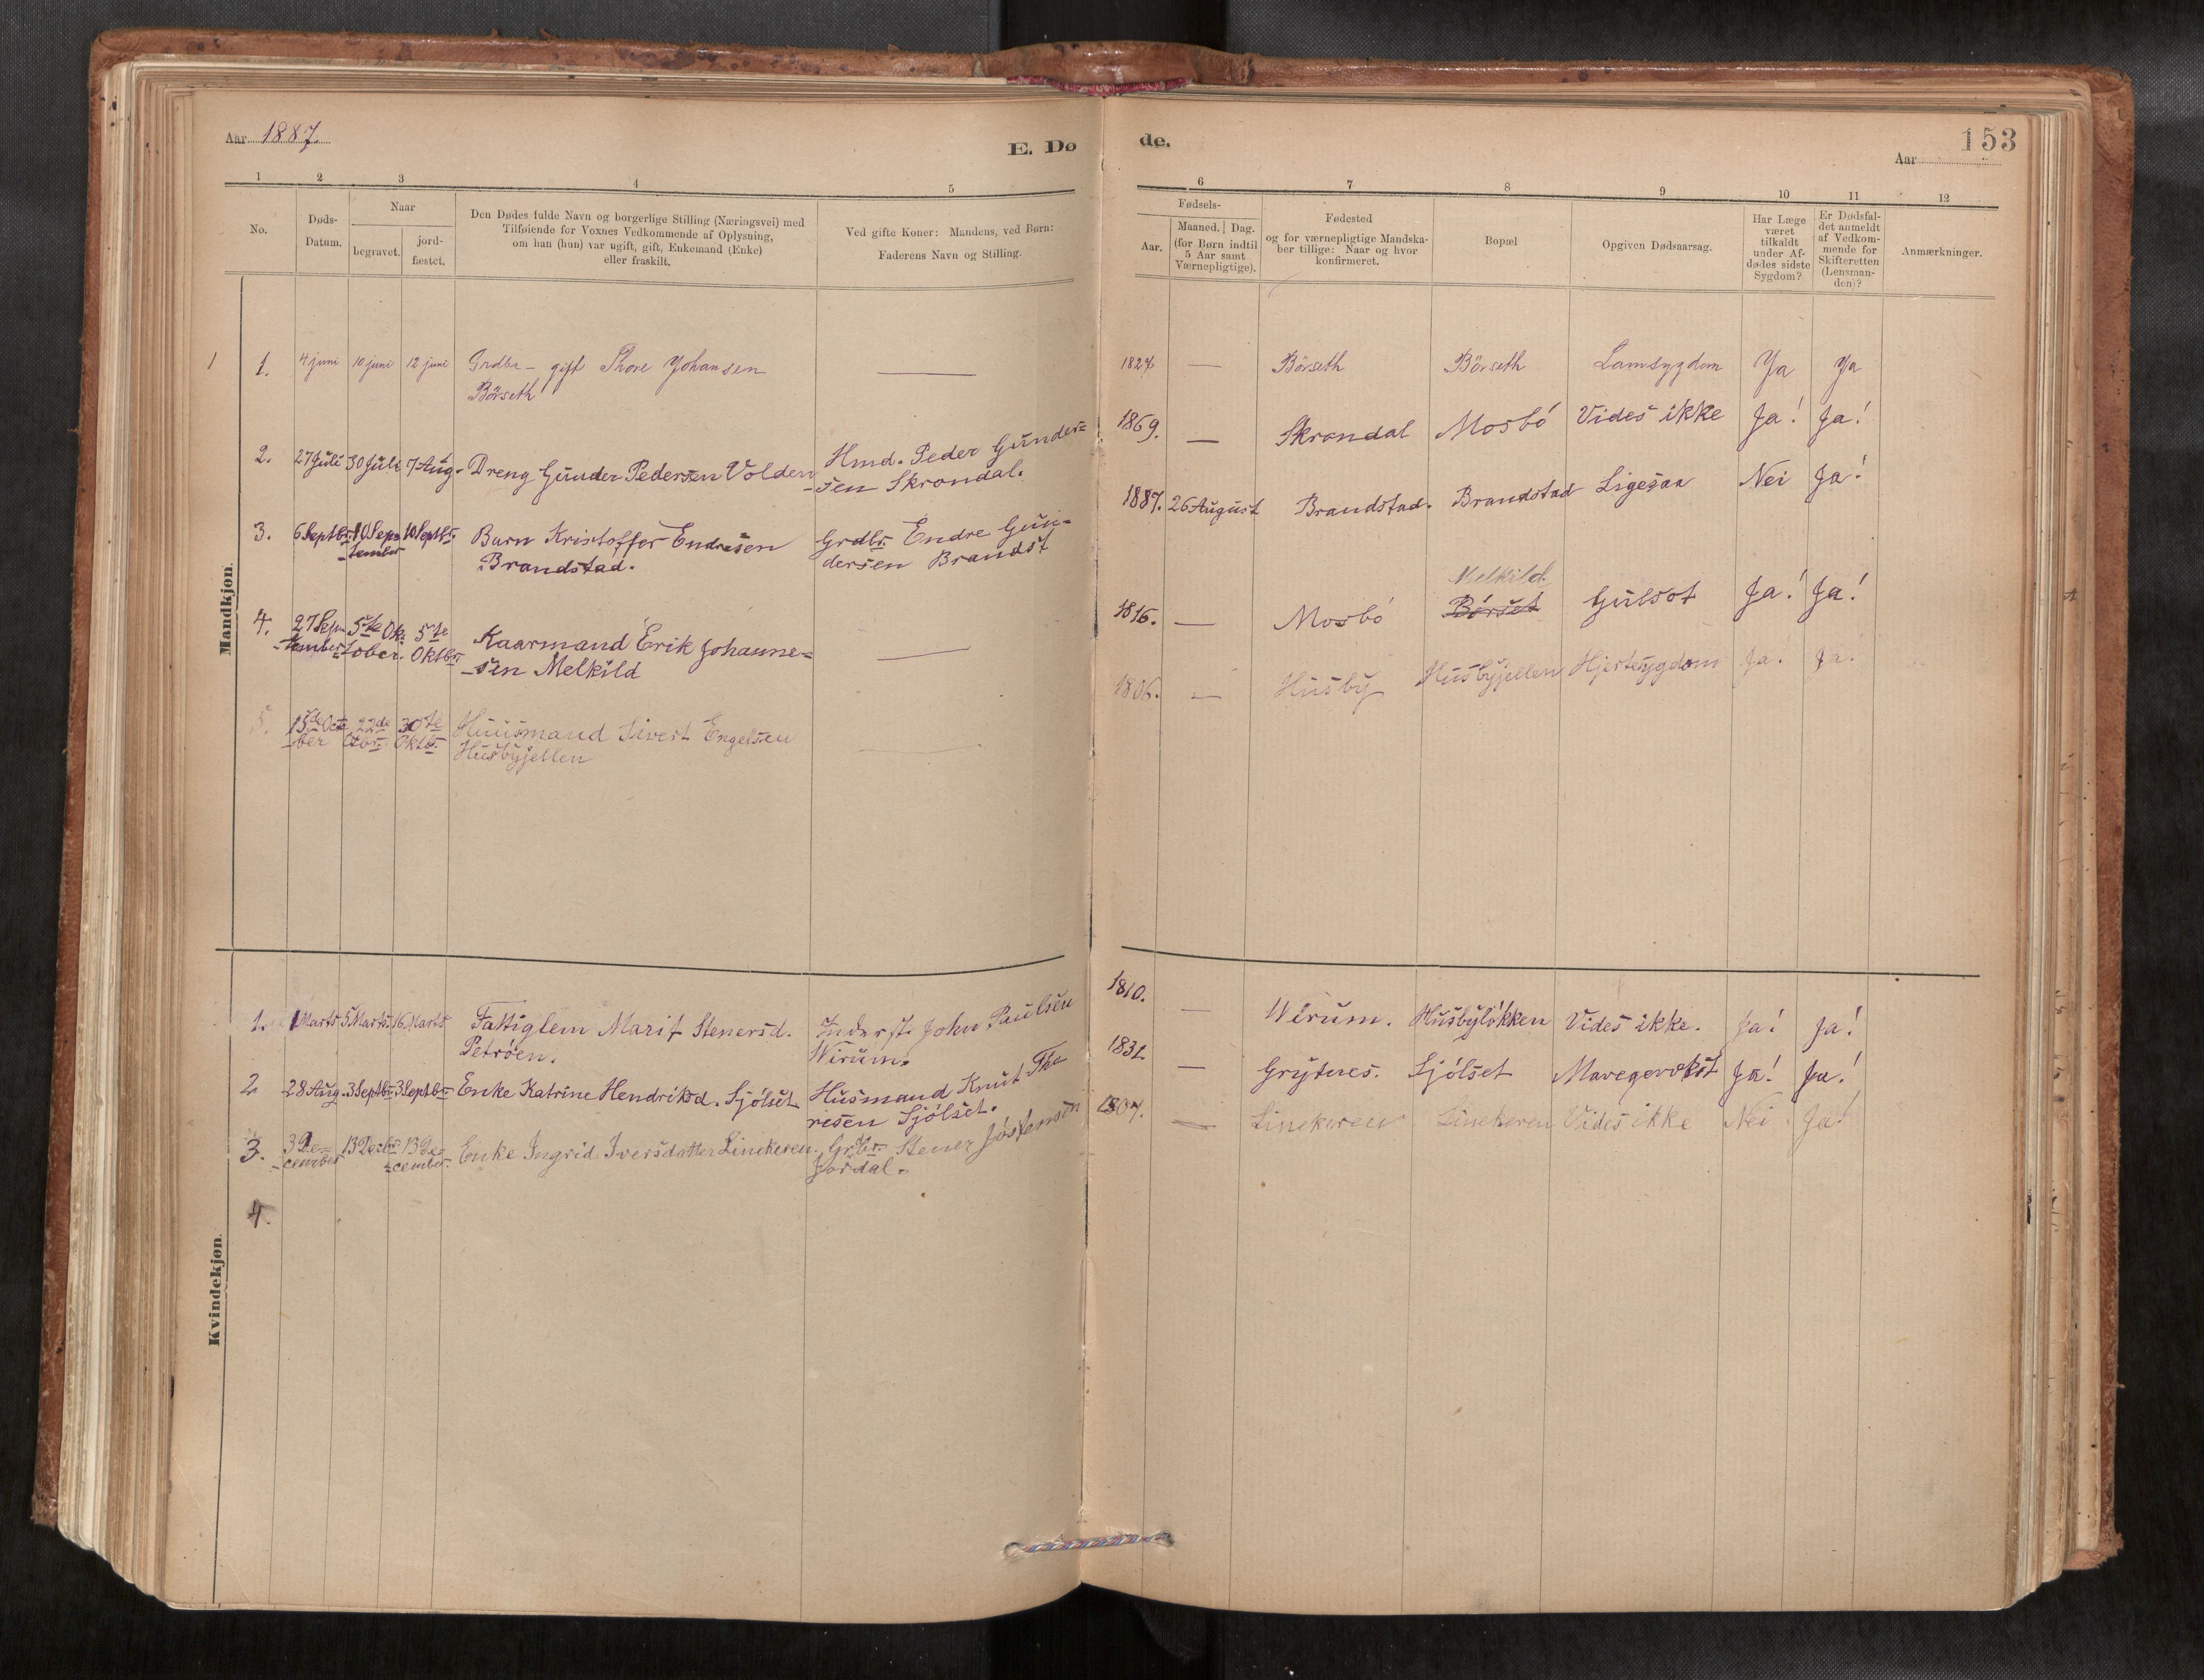 Aar 1887.
E. Dø
de.
153
Aar
1 2 3 4 5
6 7 8 9 10 11 12
No.
Døds-
Datum.
Naar
begravet.
jord-
fæstet.
Den Dødes fulde Navn og borgerlige Stilling (Næringsvei) med
Tilføiende for Voxnes Vedkommende af Oplysning,
om han (hun) var ugift, gift, Enkemand (Enke)
eller fraskilt.
Ved gifte Koner: Mandens, ved Børn:
Faderens Navn og Stilling.
Fødsels-
Aar.
Maaned. Dag.
(for Børn indtil
5 Aar samt
Værnepligtige).
Fødested
og for værnepligtige Mandska-
ber tillige: Naar og hvor
konfirmeret.
Bopæl
Opgiven Dødsaarsag.
Har Læge
været
tilkaldt
under Af-
dødes sidste
Sygdom?
Er Dødsfal-
det anmeldt
af Vedkom-
mende for
Skifteretten
(Lensman-
den)?
Anmærkninger.
Mandkjøn.
1 1. 4 juni 10 juni 12 juni Grdbr – gift Thore Johansen —
Börseth
1827 — Börseth Börseth Lamsygdom Ja Ja
2. 27 Juli 30 Juli 7 Aug. Dreng Gunder Pedersen Volden Hmd. Peder Gunder=
-sen Skrondal.
1869. — Skrondal Mosbó Vides ikke Ja! Ja!
3. 6 Septbr. 10 Sep= 10 Septbr. Barn Kristoffer Endresen Grdbr. Endre Gun-
-tember Brandstad. dersen Brandst
1887. 26 August Brandstad. Brandstad Ligesaa Nei Ja!
4. 27 Sep= 5te Ok- 5te Kaarmand Erik Johanne= —
-tember tober. Oktbr. -sen Melkild
Melkild.
1816. — Mosbó Börset Gulsot Ja! Ja!
5. 15de Octo 22de 30te Huusmand Sivert Engelsen —
-ber Octbr. Oktbr. Husbyjellen
1806. — Husby Husbyjellen Hjertesygdom Ja! Ja!
Kvindekjøn.
1. 1 Marts 5 Marts. 16 Marts Fattiglem Marit Stenersd. Inderst. John Paulsen
Petróen. Wirum.
1810. — Wirum. Husbylókken Vides ikke. Ja! Ja!
2 28 Aug. 3 Septbr. 3 Septbr. Enke Katrine Hendriksd. Sjólset Husmand Knut Tho
resen Sjólset.
1831 — Grytnes. Sjólset Mavegevekst Ja! Ja!
3. 3 De= 13 Decbr. 13 De= Enke Ingrid Iversdatter Linekeren. Grbr. Stener Jostensen
-cember -cember. Jordal.
1807. — Linekeren Linekeren Vides ikke Nei. Ja!
4.